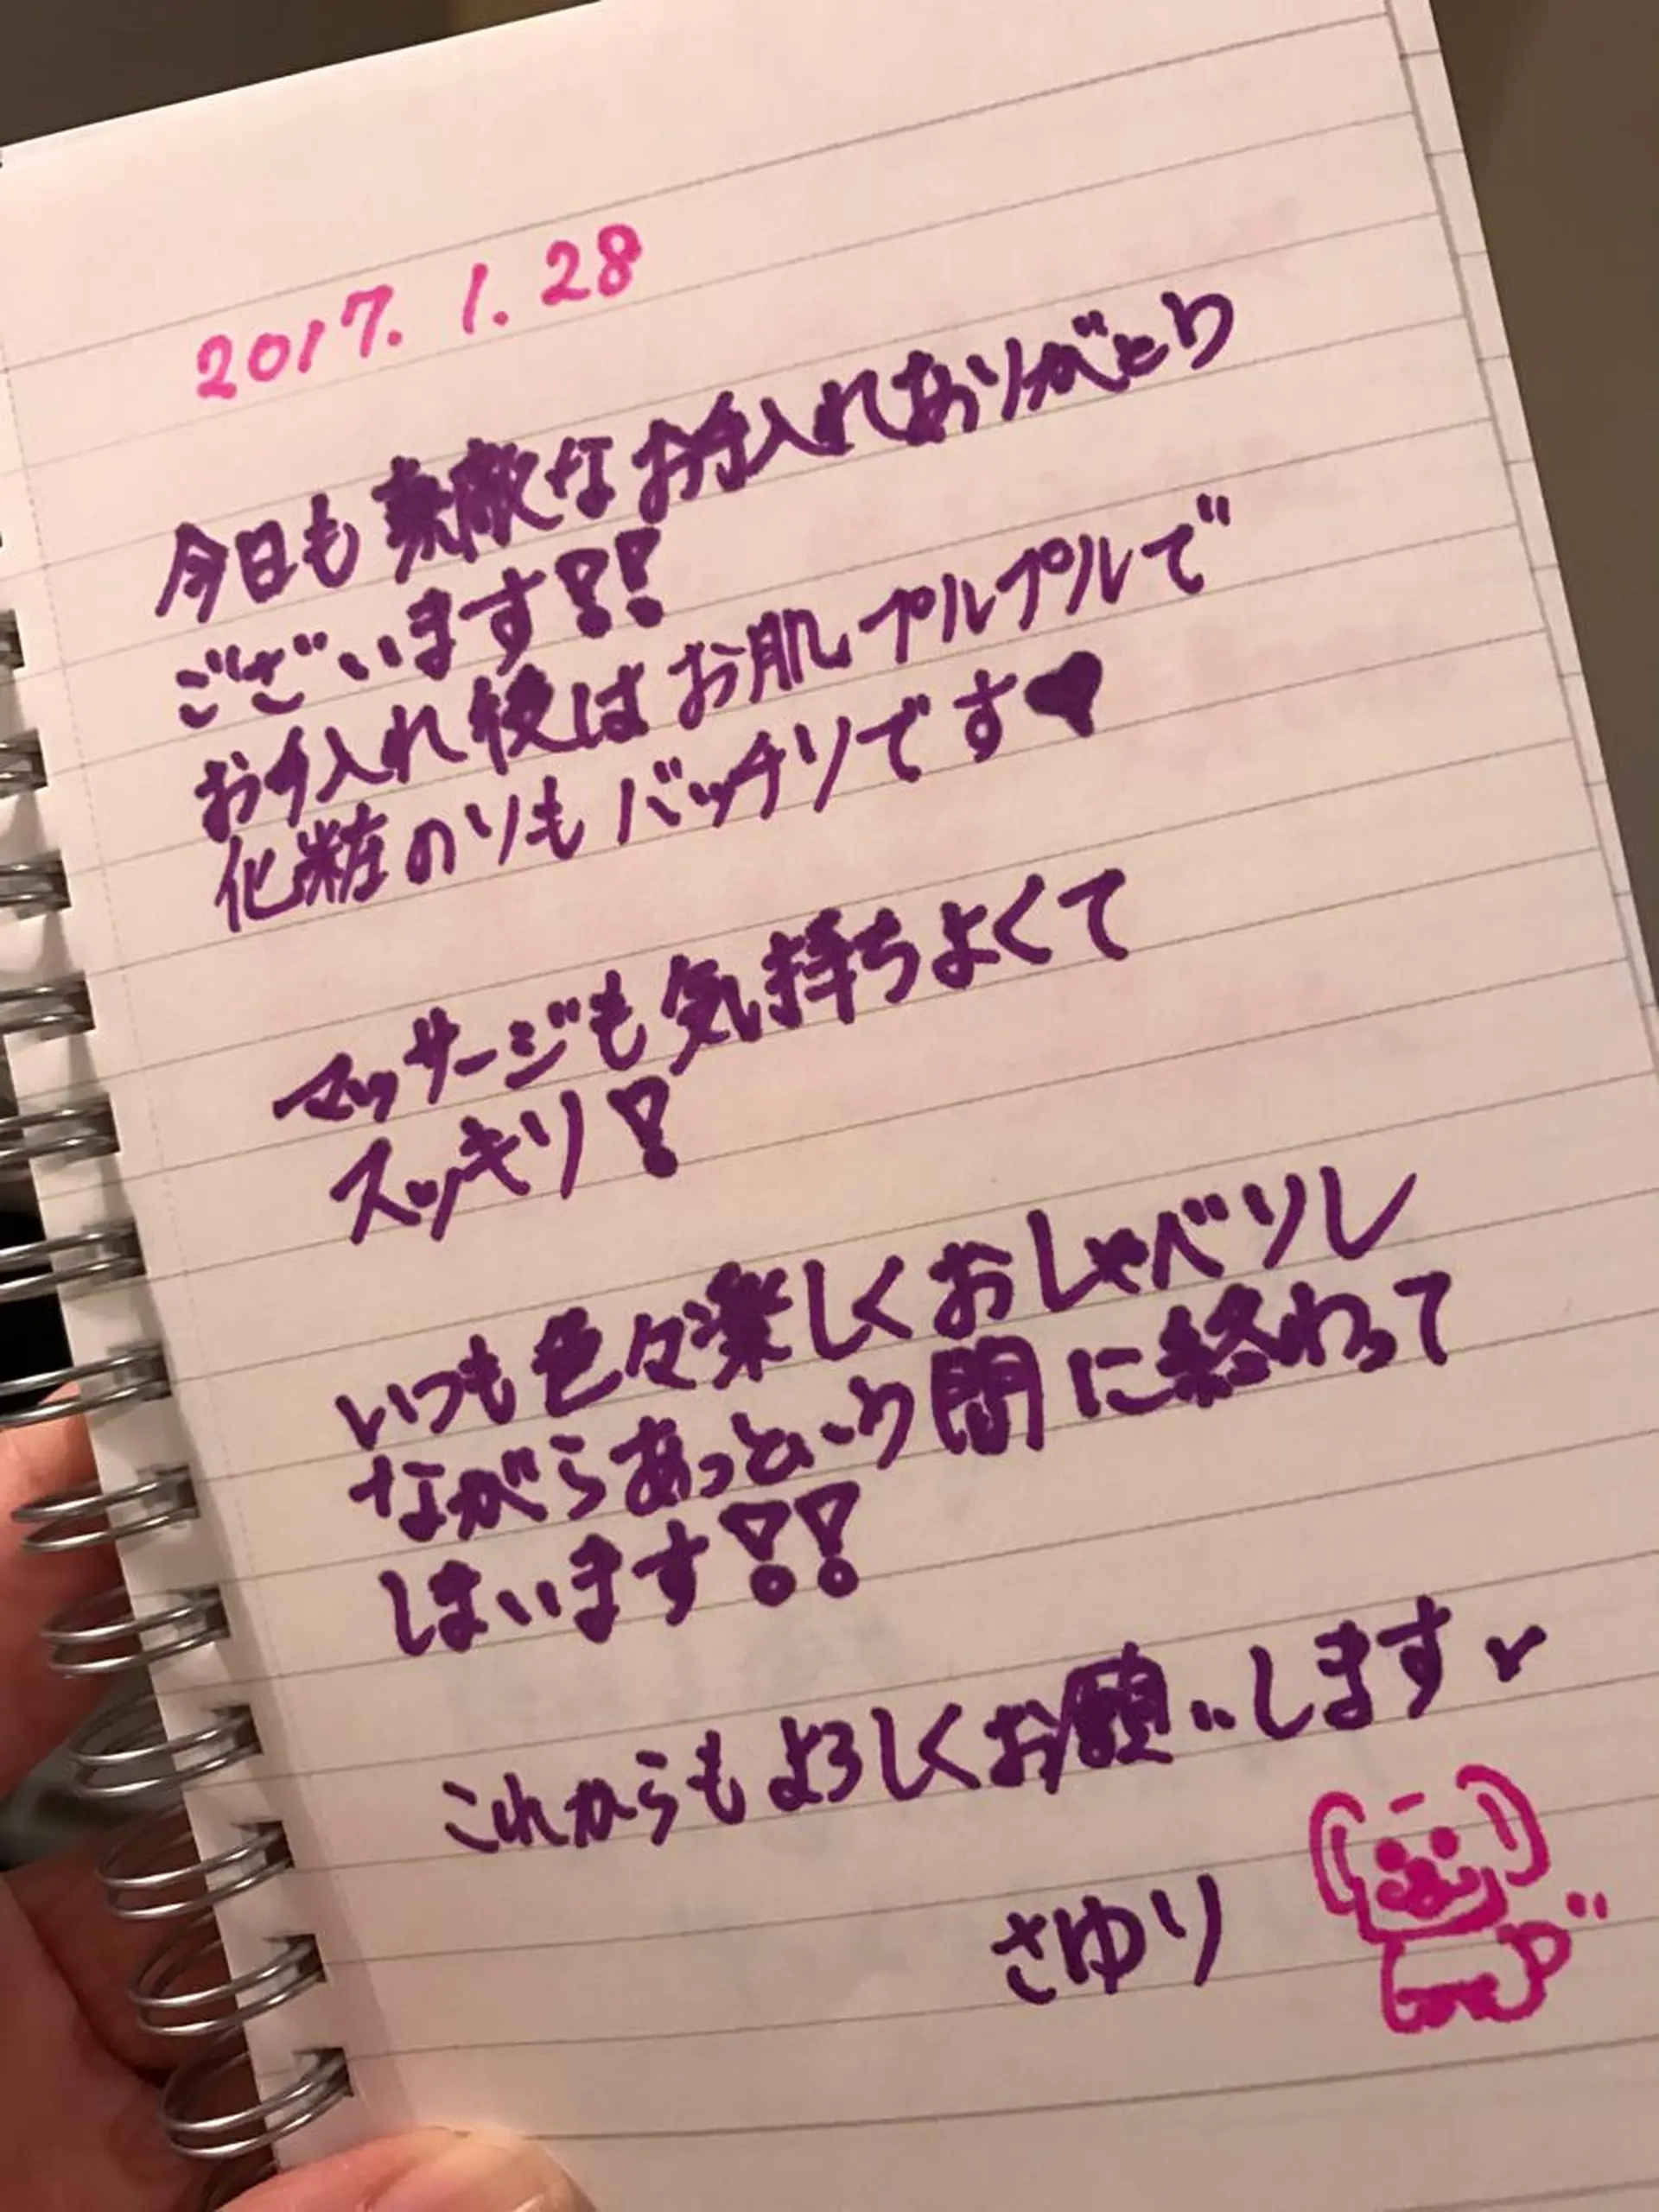 2017. 1. 28
今日も素敵なお手入れありがとう
ございます!!
お手入れ後はお肌プルプルで
化粧のりもバッチリです♥
マッサージも気持ちよくて
スッキリ!
いつも色々楽しくおしゃべりし
ながらあっとゆう間に終わって
しまいます!!
これからもよろしくお願いします♥
さゆり